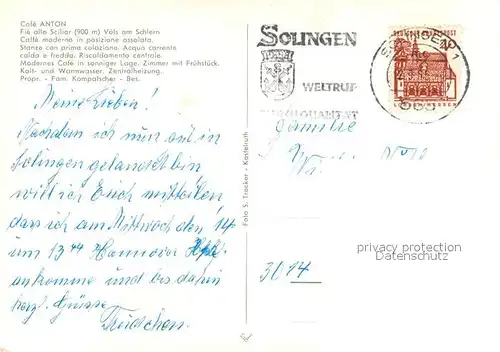 Café ANTON
Fié allo Sciliar (900 m) Völs am Schlern
Caffè moderno in posizione assolata.
Stanze con prima colazione. Acqua corrente
calda e fredda. Riscaldamento centrale.
Modernes Café in sonniger Lage. Zimmer mit Frühstück.
Kalt- und Warmwasser. Zentralheizung.
Propr. - Fam. Kompatscher - Bes.
Meine Lieben!
Nachdem ich nun gut in
Solingen gelandet bin
will ich Euch mitteilen
dass ich am Mittwoch den 14
um 13 44 Hannover Hbf.
ankomme und bis dahin
herzl. Grüsse
Trudchen.
Foto S. Trocker - Kastelruth
SOLINGEN
WELTRUF
DURCH QUALITÄT
SOLINGEN 1
DEUTSCHE BUNDESPOST
Familie
3014
privacy protection
Datenschutz